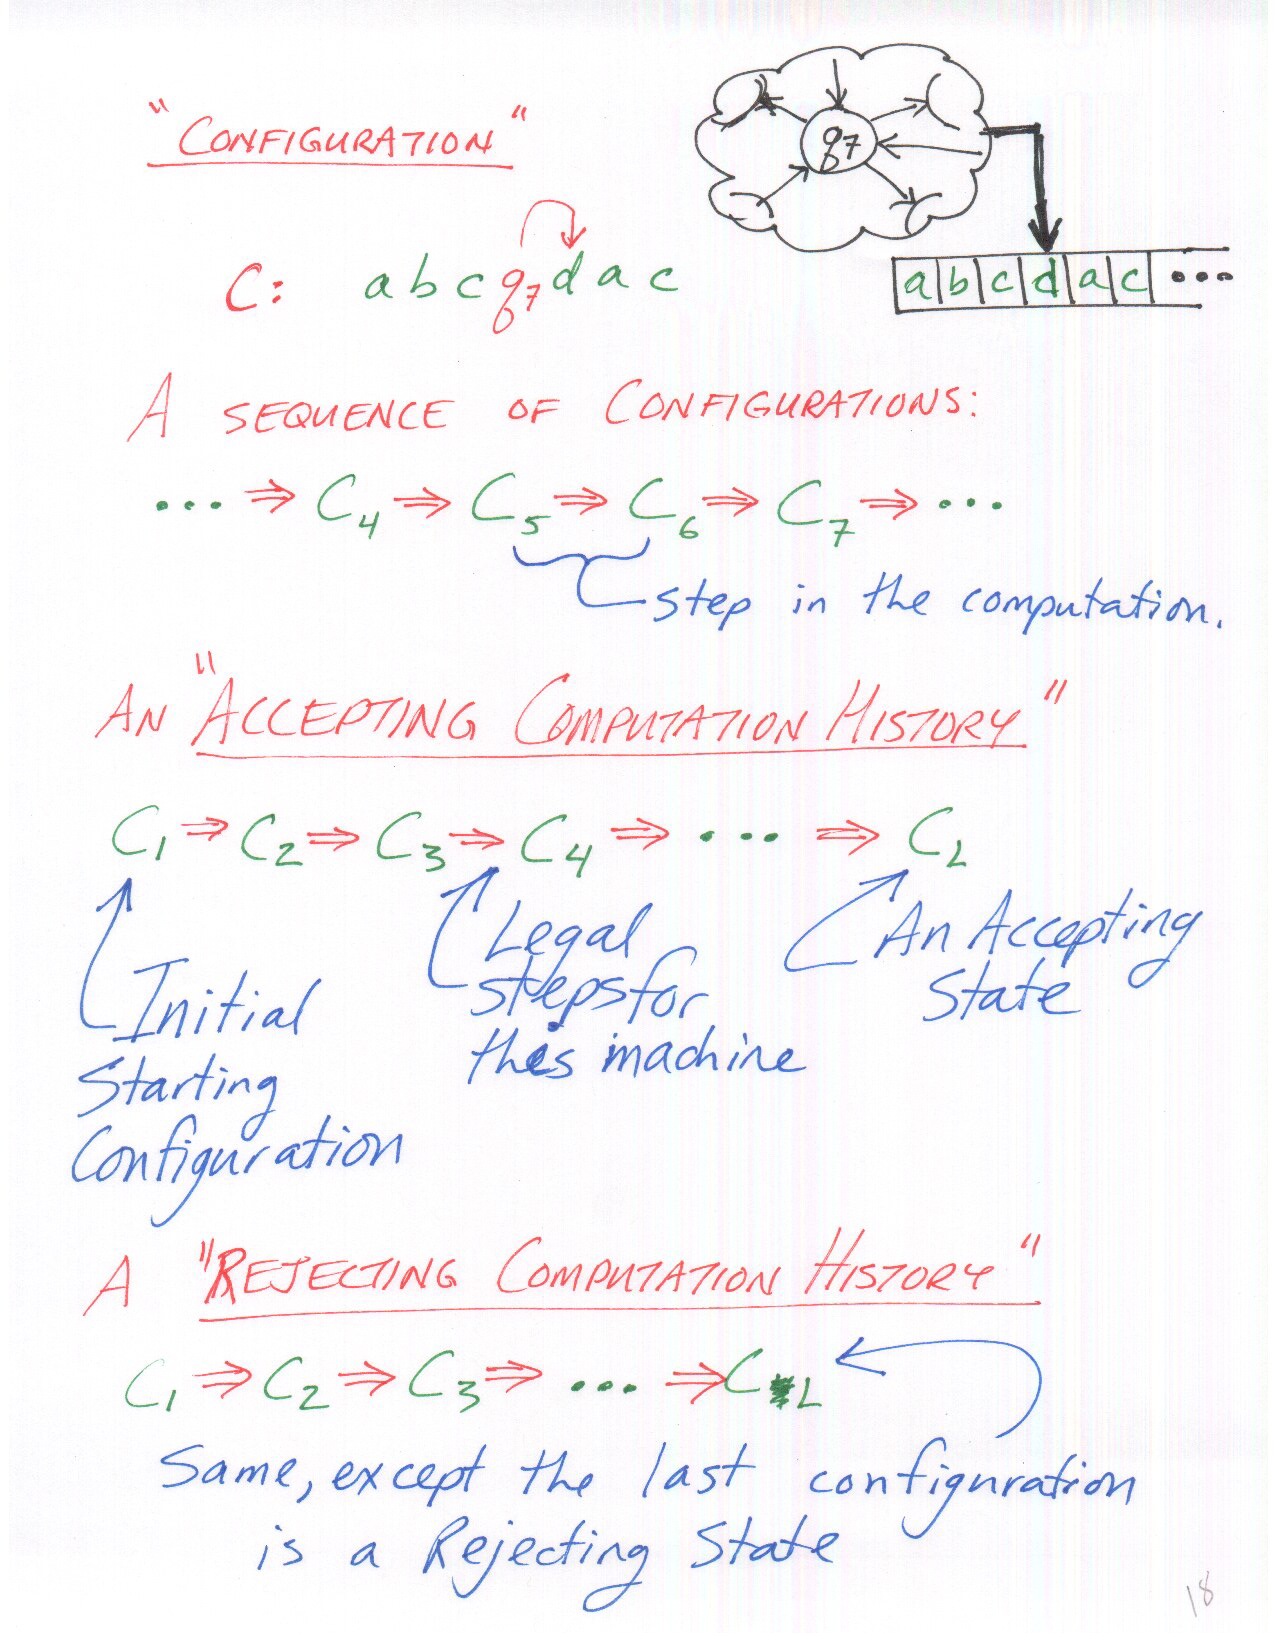 "CONFIGURATION"
q7
C: a b c q7 d a c
a b c d a c •••
A SEQUENCE OF CONFIGURATIONS:
••• ⇒ C4 ⇒ C5 ⇒ C6 ⇒ C7 ⇒ •••
step in the computation.
AN "ACCEPTING COMPUTATION HISTORY"
C1 ⇒ C2 ⇒ C3 ⇒ C4 ⇒ ••• ⇒ CL
Initial
Starting
Configuration
Legal
steps for
this machine
An Accepting
State
A "REJECTING COMPUTATION HISTORY"
C1 ⇒ C2 ⇒ C3 ⇒ ••• ⇒ CL
Same, except the last configuration
is a Rejecting State
18